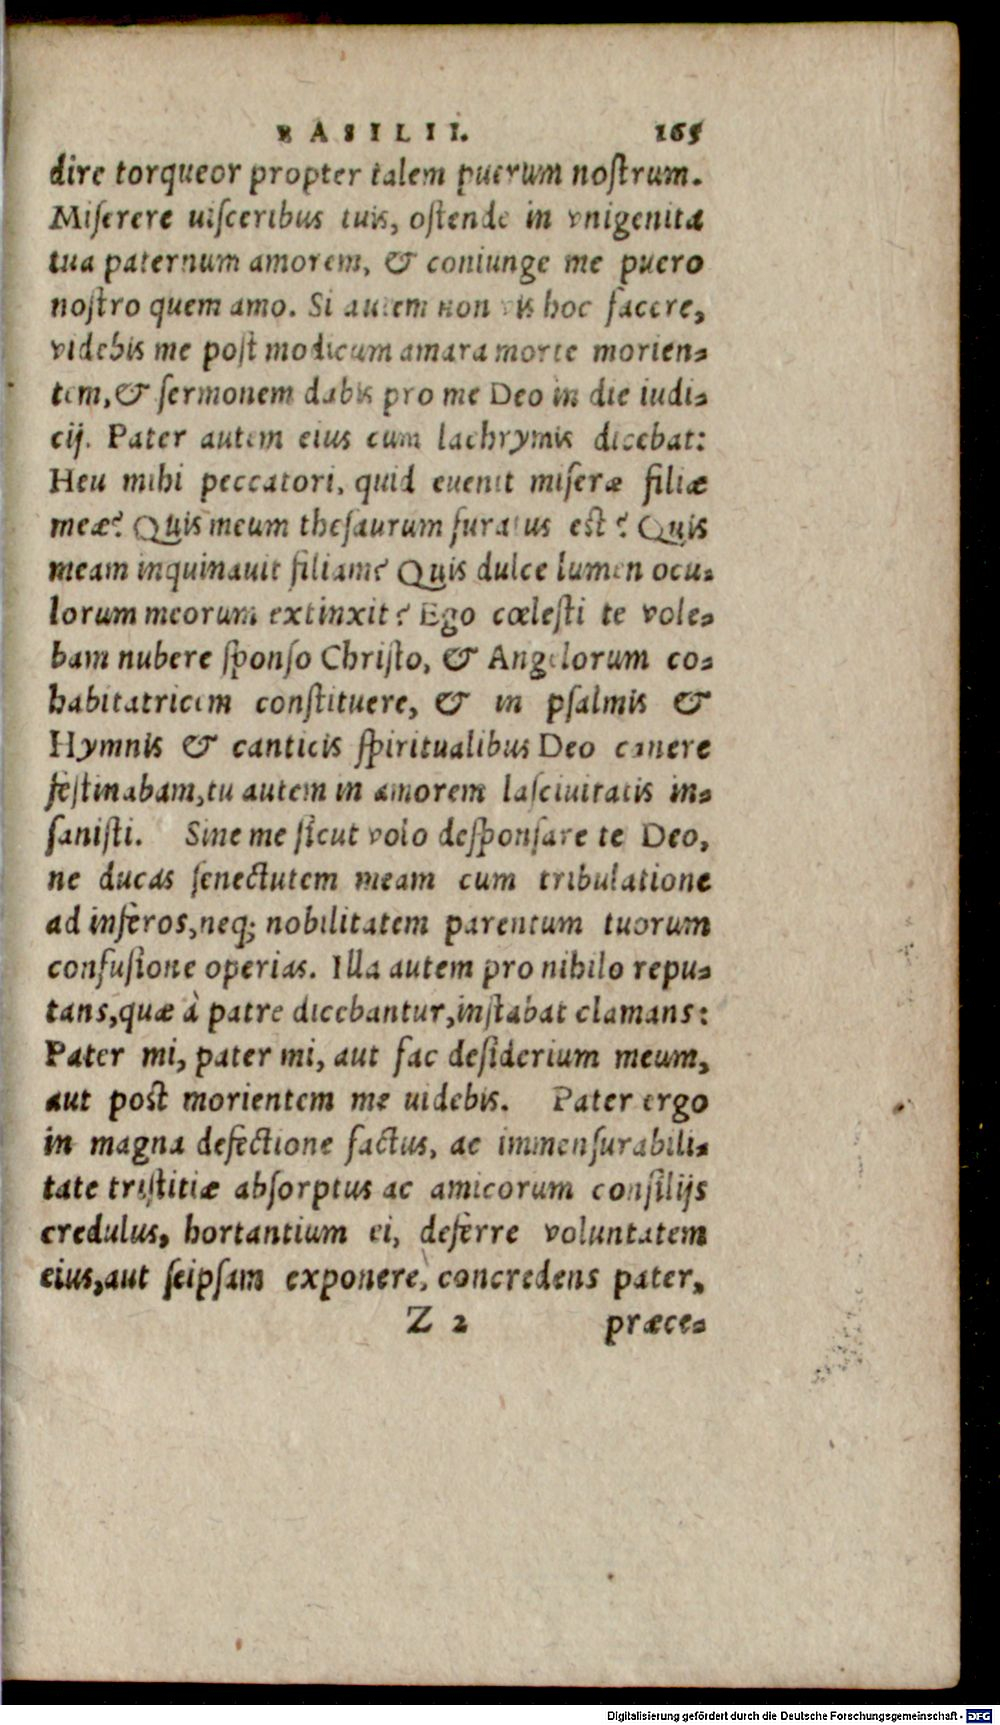 BASILII. 165
dire torqueor propter talem puerum nostrum.
Miserere uisceribus tuis, ostende in vnigenita
tua paternum amorem, & coniunge me puero
nostro quem amo. Si autem non vis hoc facere,
videbis me post modicum amara morte morien-
tem, & sermonem dabis pro me Deo in die iudi-
cij. Pater autem eius cum lachrymis dicebat:
Heu mihi peccatori, quid euenit miseræ filiæ
meæ? Quis meum thesaurum furatus est? Quis
meam inquinauit filiam? Quis dulce lumen ocu-
lorum meorum extinxit? Ego cœlesti te vole-
bam nubere sponso Christo, & Angelorum co-
habitatricem constituere, & in psalmis &
Hymnis & canticis spiritualibus Deo canere
festinabam, tu autem in amorem lasciuitatis in-
sanisti. Sine me sicut volo desponsare te Deo,
ne ducas senectutem meam cum tribulatione
ad inferos, neq; nobilitatem parentum tuorum
confusione operias. Illa autem pro nihilo repu-
tans, quæ à patre dicebantur, instabat clamans:
Pater mi, pater mi, aut fac desiderium meum,
aut post morientem me uidebis. Pater ergo
in magna defectione factus, ac immensurabili-
tate tristitiæ absorptus ac amicorum consilijs
credulus, hortantium ei, deferre voluntatem
eius, aut seipsam exponere, concredens pater,
Z 2 præce-
Digitalisierung gefördert durch die Deutsche Forschungsgemeinschaft - DFG